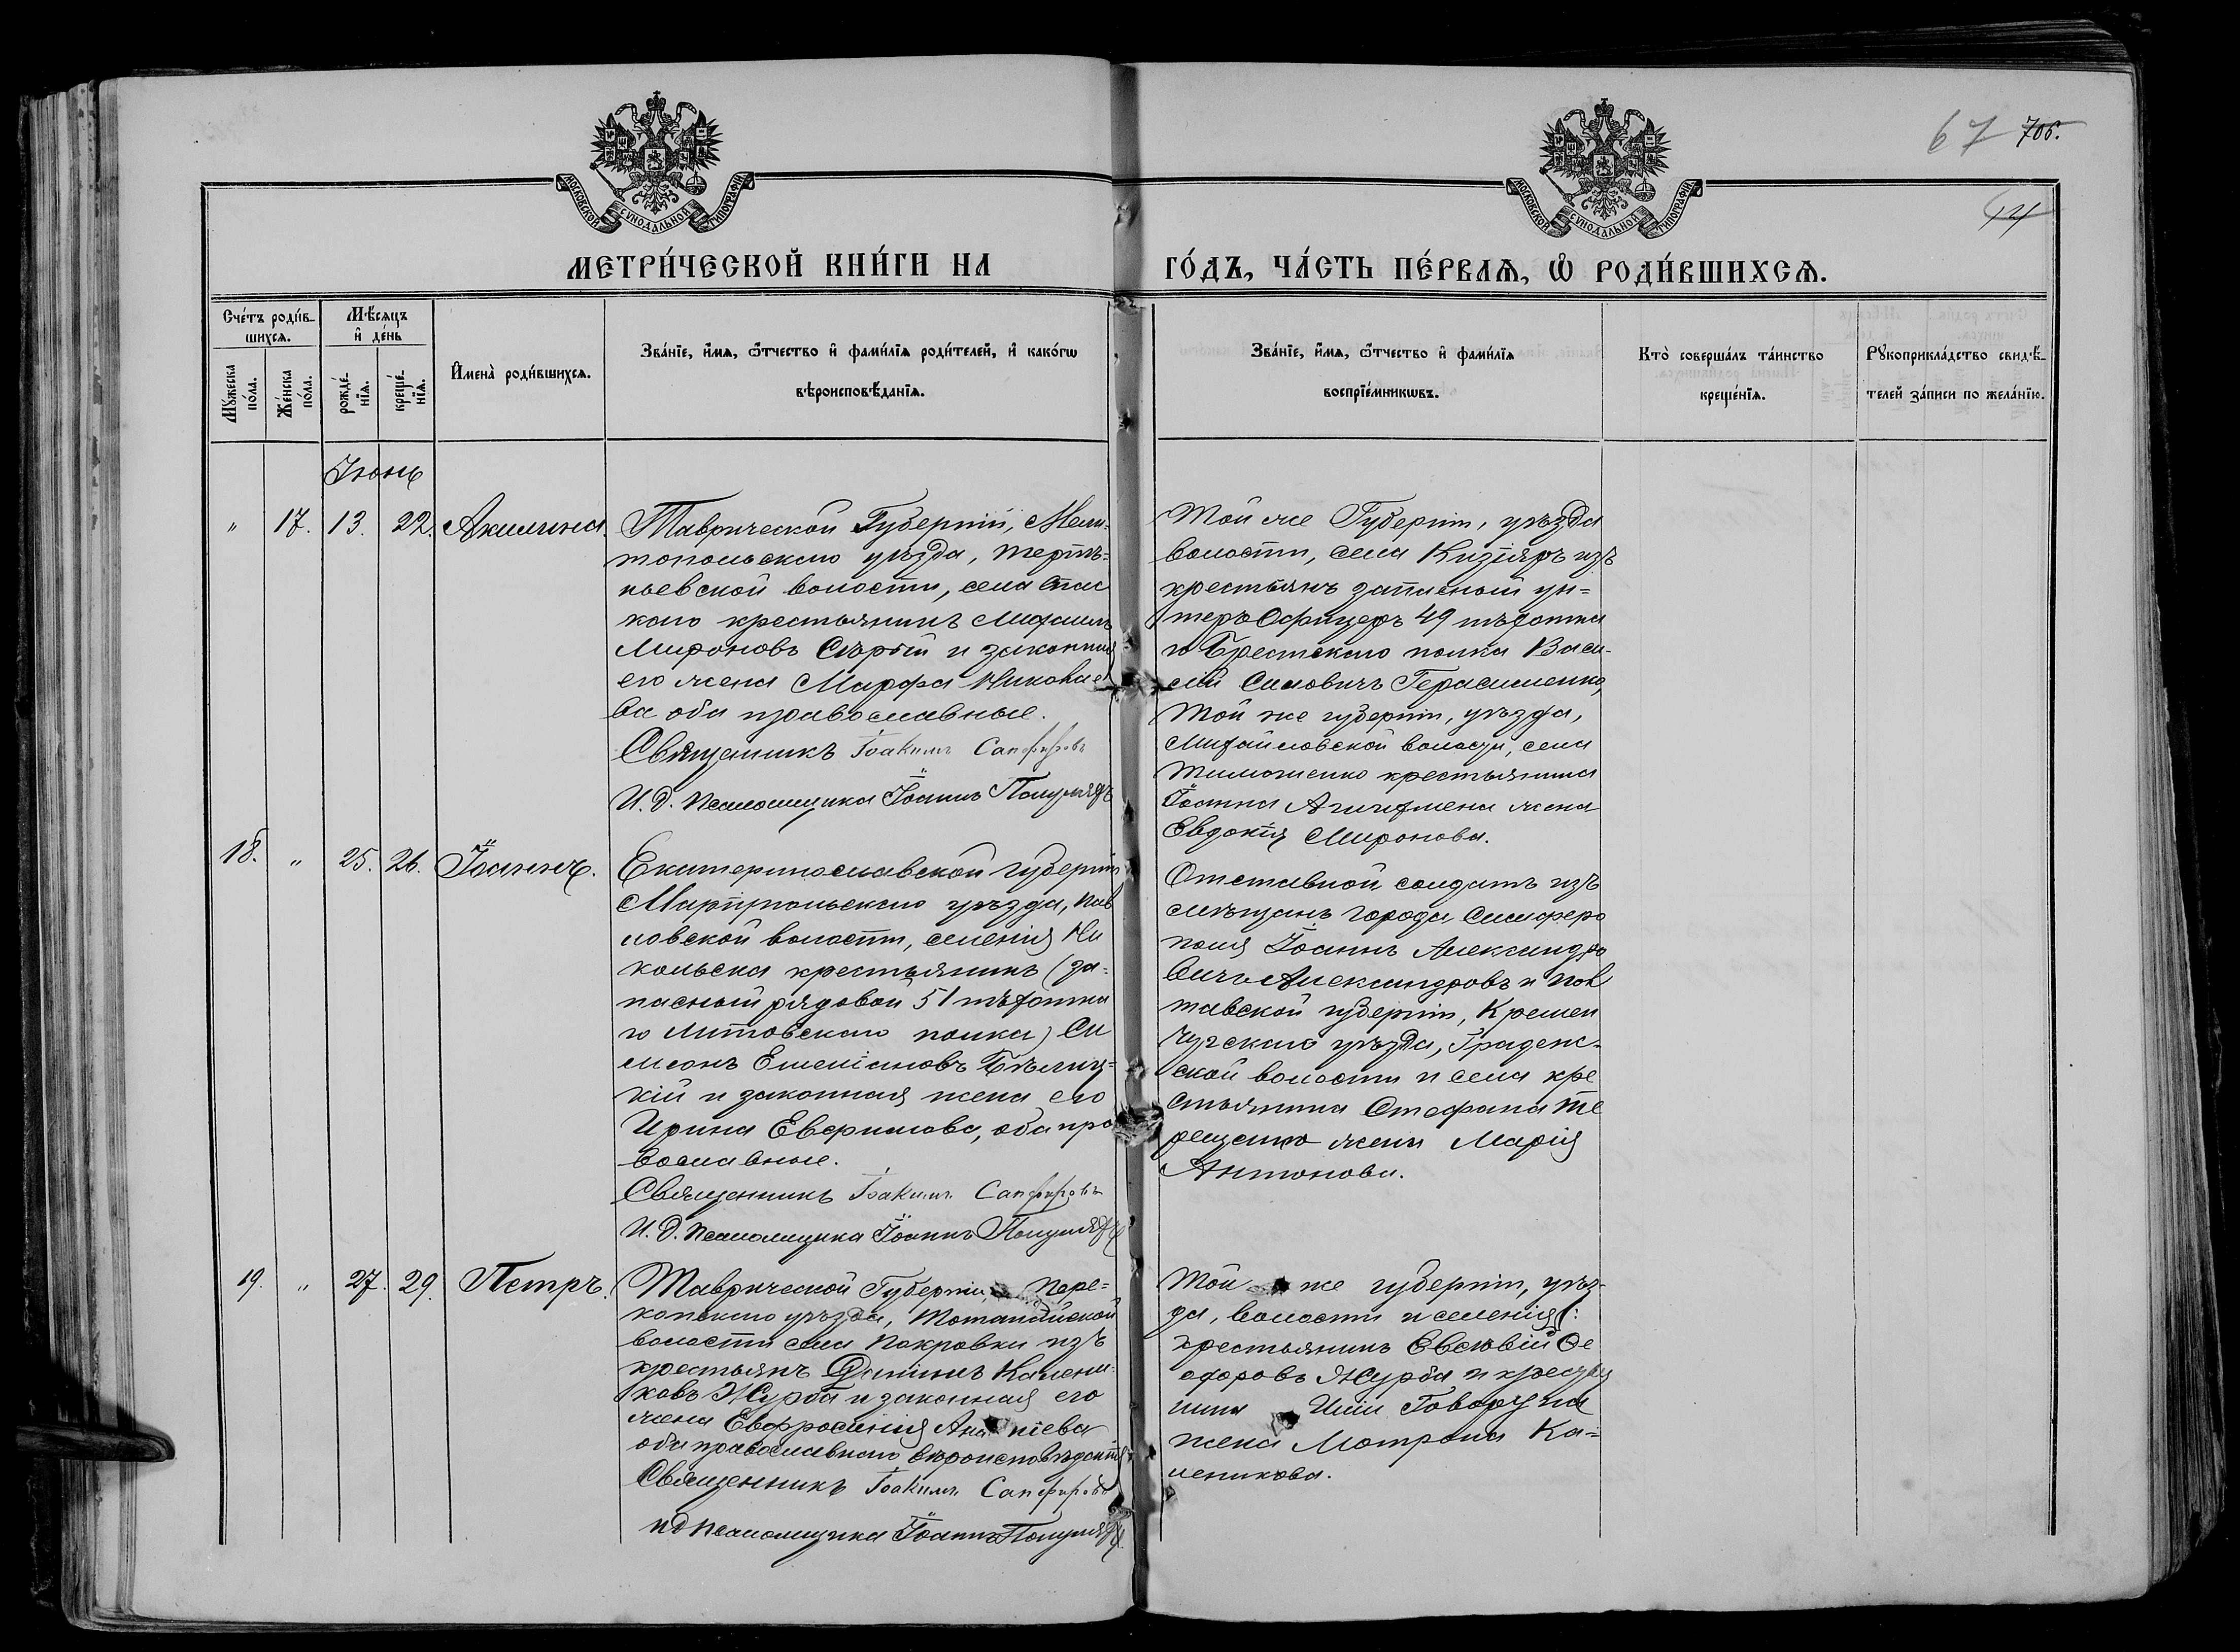 67 7об.
14
МОСКОВСКОЙ СѴНОДАЛЬНОЙ ТИПОГРАФІИ
МОСКОВСКОЙ СѴНОДАЛЬНОЙ ТИПОГРАФІИ
МЕТРИ́ЧЕСКОЙ КНИ́ГИ НА ГО́ДЪ, ЧА́СТЬ ПЕ́РВАѦ, Ѡ҆ РОДИ́ВШИХСѦ.
Сче́тъ роди́в-
шихсѧ.
Мꙋ́жеска по́ла.
Же́нска по́ла.
Мѣ́сѧцъ
и҆ де́нь
рожде́-
нїѧ.
креще́-
нїѧ.
И҆мена̀ роди́вшихсѧ.
Зва́нїе, и҆́мѧ, ѻ҆́тчество и҆ фами́лїѧ роди́телей, и҆ како́гѡ
вѣроисповѣ́данїѧ.
Зва́нїе, и҆́мѧ, ѻ҆́тчество и҆ фами́лїѧ
воспрїе́мникѡвъ.
Кто̀ соверша́лъ та́инство
креще́нїѧ.
Рꙋкоприкла́дство свидѣ́-
телей за́писи по жела́нїю.
Іюнь
„ 17. 13. 22. Акилина.
Таврической Губерніи, Мели-
топольскаго уѣзда, Терпѣ-
ньевской волости, села Спас
каго крестьянинъ Михаилъ
Мироновъ Сѣрый и законная
его жена Марфа Николае
ва оба православные.
Священникъ Іоакимъ Сапфировъ
И. д. псаломщика Іоаннъ
Той же Губерніи, уѣзда
волости, села Кизіяръ изъ
крестьянъ запасный ун-
теръ Офицеръ 49 пѣхотна
го Брестскаго полка Васи-
лій Силовичъ Герасименко,
Той же губерніи, уѣзда,
Михайловской волости, села
Тимошевко крестьянина
Іоанна жена
Евдокія Миронова.
18. „ 25. 26. Іоаннъ.
Екатеринославской губерніи
Маріупольскаго уѣзда, Пав
ловской волости, селенія Ни
кольска крестьянинъ (за-
пасный рядовой 51 пѣхотна
го Литовскаго полка) Си
меонъ Емеліановъ Бѣлиц-
кій и законная жена его
Ирина оба пра
вославные.
Священникъ Іоакимъ Сапфировъ
И. д. псаломщика Іоаннъ
Отставной солдатъ изъ
мѣщанъ города Симферо
поля Іоаннъ Александро
вичъ Александровъ и Пол
тавской губерніи, Кремен
чугскаго уѣзда, Градиж-
ской волости и села кре
стьянина Стефана Те
рещенко жена Марія
Антонова.
19. „ 27. 29. Петръ.
Таврической Губерніи, Пере-
копскаго уѣзда,
волости села Покровки изъ
крестьянъ Даніилъ Калени-
ковъ Журба и законная его
жена Евфросинія Ананіева
оба православнаго вѣроисповѣданія
Священникъ Іоакимъ Сапфировъ
ид псаломщика Іоаннъ
Той же губерніи, уѣз-
да, волости и селенія:
крестьянинъ Евсевій Ѳе
одоровъ Журба и крестья
нина Иліи Говоруна
жена Матрона Ка-
леникова.